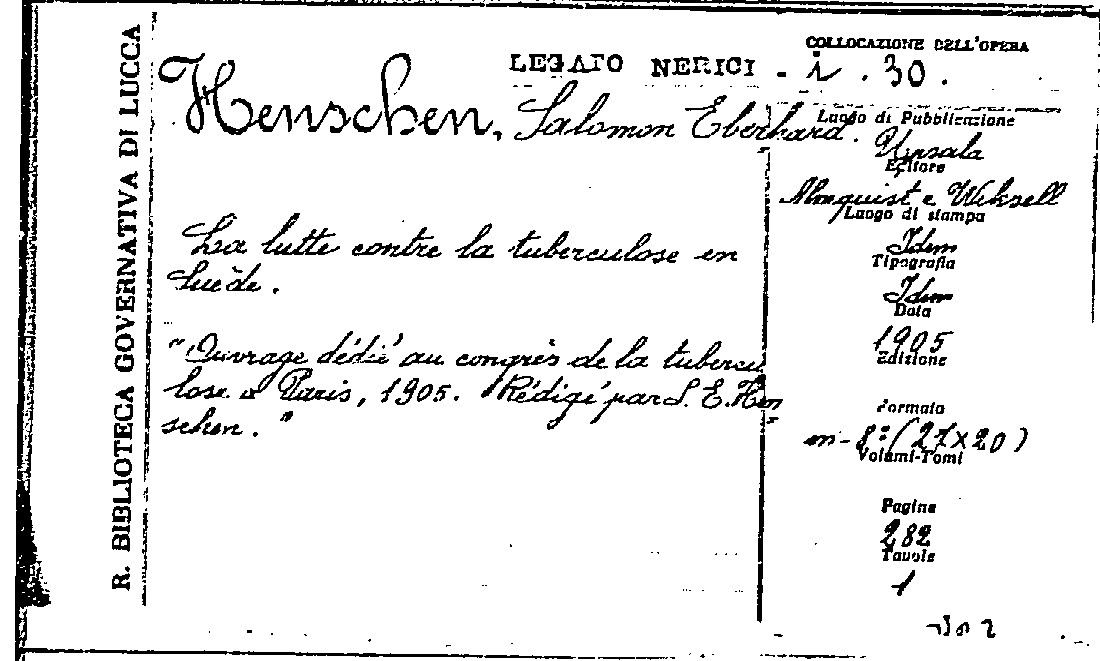 R. BIBLIOTECA GOVERNATIVA DI LUCCA
COLLOCAZIONE DELL'OPERA
LEGATO NERICI - i . 30 .
Henschen, Salomon Eberhard.
La lutte contre la tuberculose en
Suède.
"Ouvrage dédié au congrès de la tubercu
lose a Paris, 1905. Rédigé par S. E. Hen
schen."
Luogo di Pubblicazione
Upsala
Editore
Almquist e Wiksell
Luogo di stampa
Idem
Tipografia
Idem
Data
1905
Edizione
Formato
in-8º (27x20)
Volumi-Tomi
Pagine
282
Tavole
1